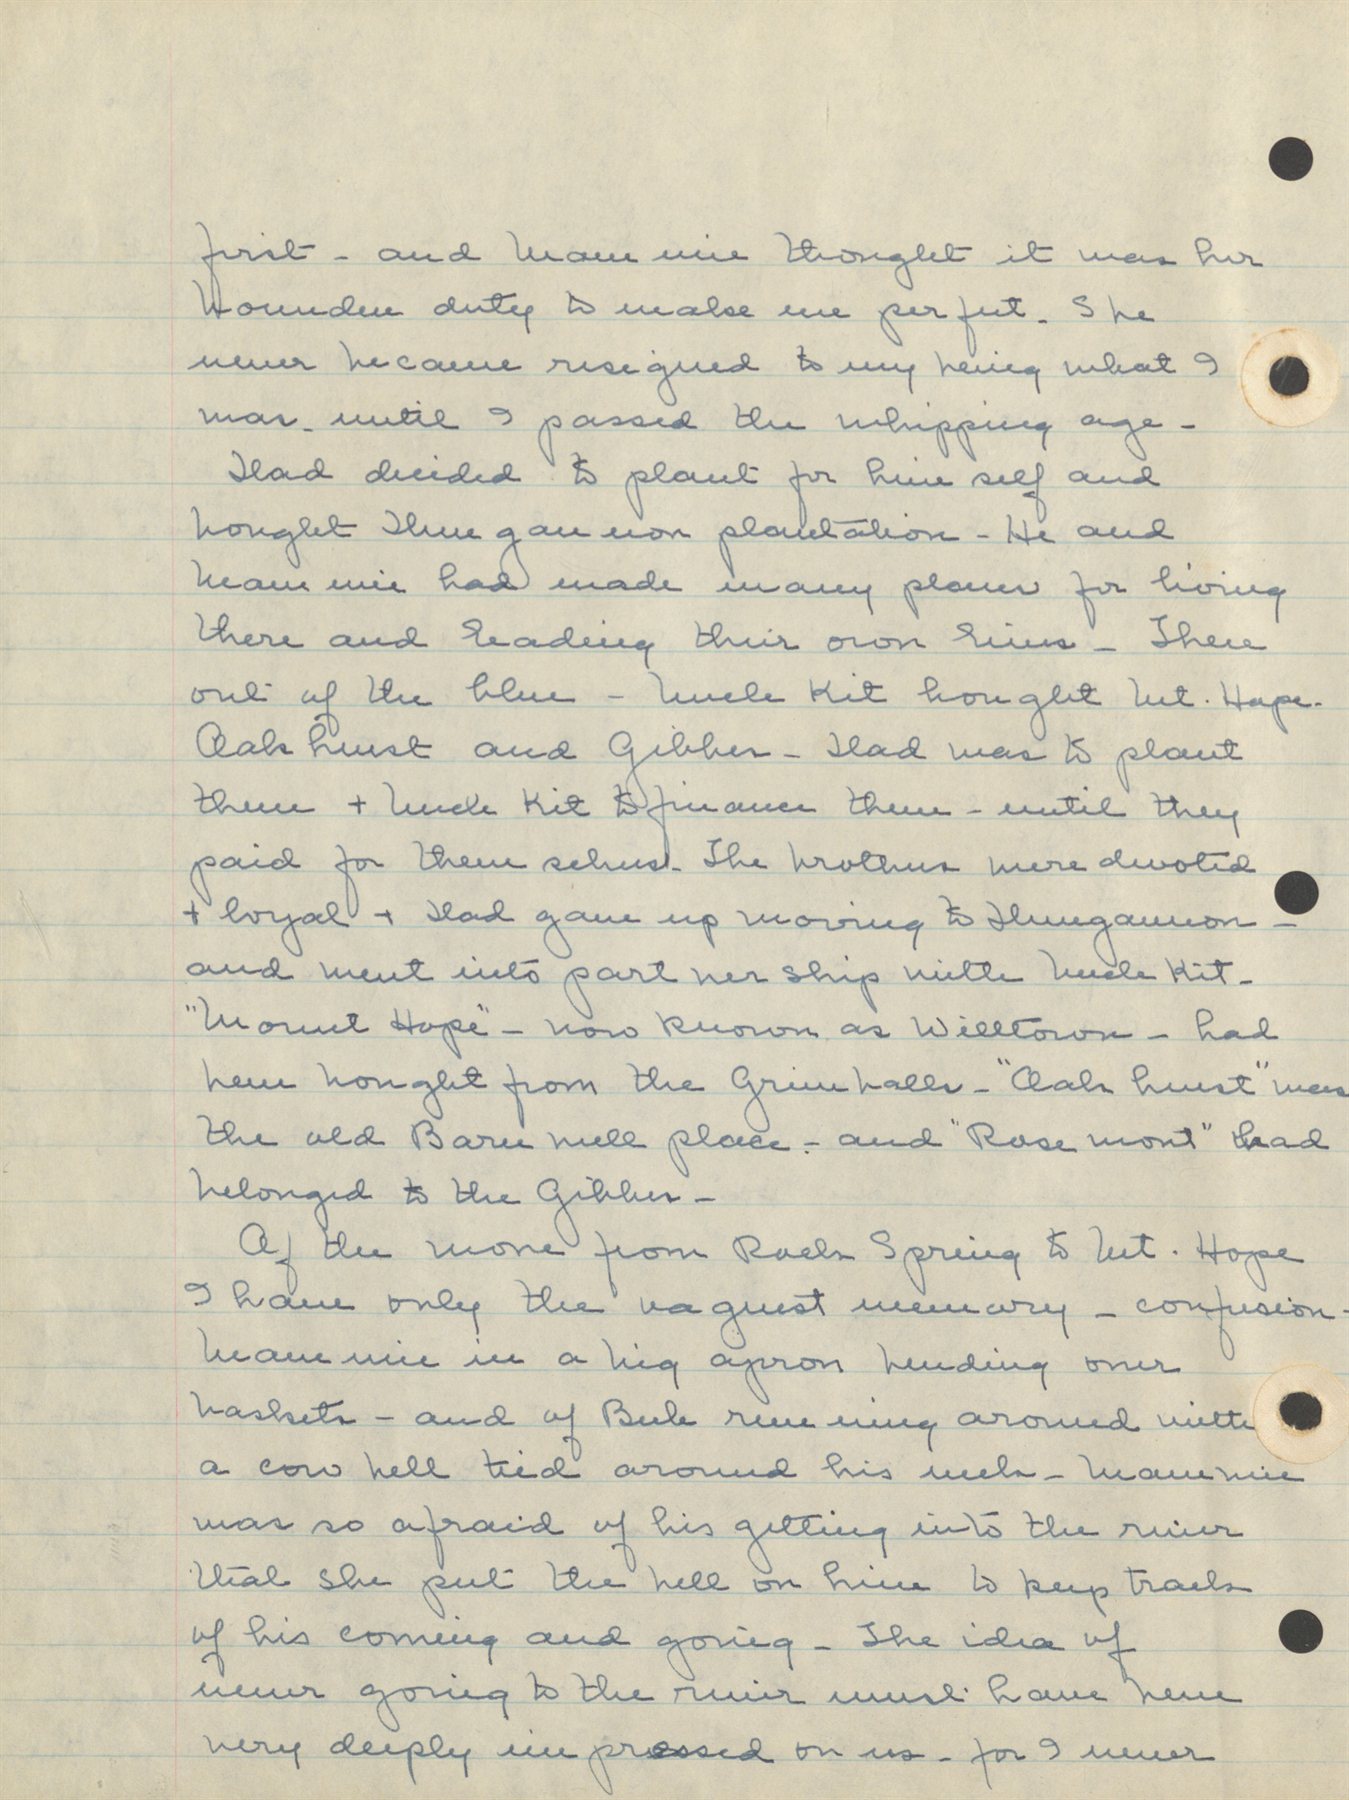 first - and Mammie thought it was her
bounden duty to make me perfect. She
never became resigned to my being what I
was until I passed the whipping age -
Dad decided to plant for himself and
bought Dungannon plantation - He and
Mammie had made many plans for living
there and leading their own lives - Then
out of the blue - Uncle Kit bought Mt. Hope.
Oakhurst and Gibbes - Dad was to plant
them + Uncle Kit to finance them - until they
paid for themselves. The brothers were devoted
+ loyal + Dad gave up moving to Dungannon -
and went into partnership with Uncle Kit -
"Mount Hope" - now known as Willtown - had
been bought from the Grimballs - "Oakhurst" was
the old Barnwell place - and "Rosemont" had
belonged to the Gibbes -
Of the move from Rock Spring to Mt. Hope
I have only the vaguest memory - confusion -
Mammie in a big apron bending over
baskets - and of Bub running around with
a cow bell tied around his neck - Mammie
was so afraid of his getting into the river
that she put the bell on him to keep track
of his coming and going - The idea of
never going to the river must have been
very deeply impressed on us - for I never